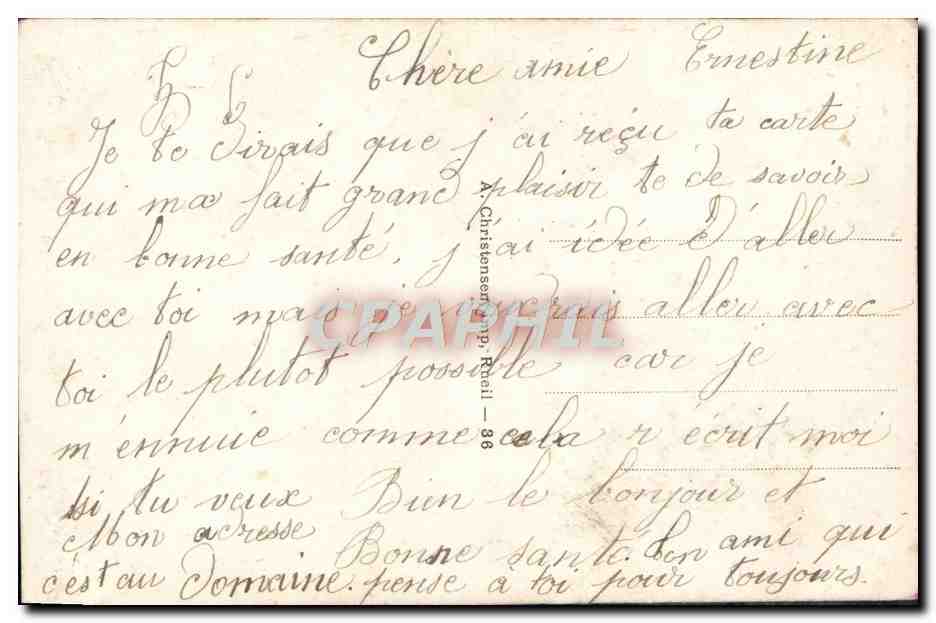 Chère amie Ernestine
Je te dirais que j'ai reçu ta carte
qui ma fait grand plaisir te de savoir
en bonne santé, j'ai idée d'aller
avec toi mais je voudrais aller avec
toi le plutot possible car je
m'ennuie comme cela r'écrit moi
si tu veux Bien le bonjour et
Mon adresse Bonne santé. ton ami qui
c'est au Domaine. pense a toi pour toujours.
A. Christensen, imp, Rueil — 36
CPAPHIL